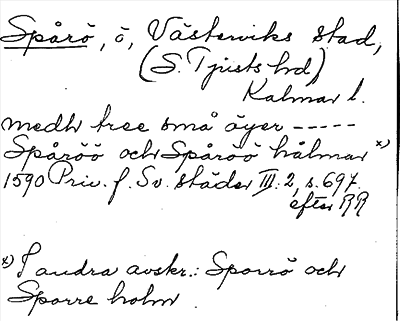 Spårö, ö, Västerviks stad,
(S. Tjusts hd)
Kalmar l.
medh tree små öyer -----
Spåröö och Spåröö hålmar x)
1590 Priv. f. Sv. städer III: 2, s. 697.
efter RR
x) I andra avskr.: Sporrö och
Sporre holm.